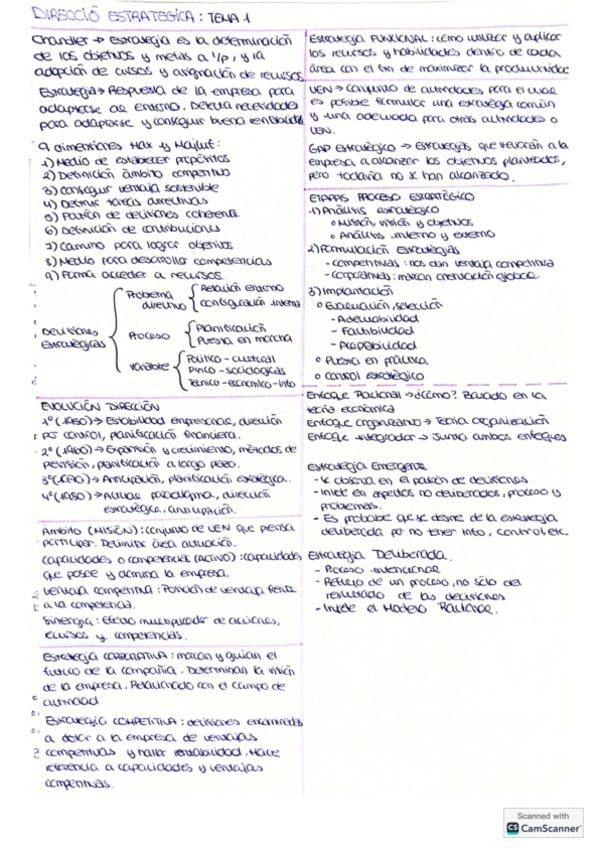 DIRECCIÓ ESTRATEGICA: TEMA 1
Chandler → Estrategia es la determinación
de los objetivos y metas a l/p, y la
adopción de cursos y asignación de recursos
Estrategia → Respuesta de la empresa para
adaptarse al entorno. Detecta necesidades
para adaptarse y conseguir buena rentabilidad
9 dimensiones Hax y Majluf:
1) Medio de establecer propósitos
2) Definición ámbito competitivo
3) conseguir ventaja sostenible
4) Definir tareas directivas
5) Patrón de decisiones coherente
6) Definición de contribuciones
7) camino para lograr objetivos
8) Medio para desarrollar competencias
9) Forma acceder a recursos
Decisiones Estratégicas
Problema directivo
Relación entorno
Configuración interna
Proceso
Planificación
Puesta en marcha
Variable
Político-cultural
Psico-sociológicas
Técnico-económico-info
EVOLUCIÓN DIRECCIÓN
1º (1950) → Estabilidad empresarial, dirección
por control, planificación financiera.
2º (1960) → Expansión y crecimiento, métodos de
previsión, planificación a largo plazo.
3º (1970) → Anticipación, planificación estratégica.
4º (1980) → Actual paradigma, dirección
estratégica, anticipación.
Ámbito (MISIÓN): conjunto de UEN que piensa
participar. Delimita área actuación.
capacidades o competencias (ACTIVO): capacidades
que posee y domina la empresa.
ventaja competitiva: Posición de ventaja frente
a la competencia.
Sinergia: Efecto multiplicador de acciones,
recursos y competencias.
Estrategia CORPORATIVA: marcan y guían el
futuro de la compañía. Determinan la visión
de la empresa. Relacionado con el campo de
actividad
Estrategia COMPETITIVA: decisiones encaminadas
a dotar a la empresa de ventajas
competitivas y hallar rentabilidad. Hace
referencia a capacidades y ventajas
competitivas.
Estrategia FUNCIONAL: cómo utilizar y aplicar
los recursos y habilidades dentro de cada
área con el fin de maximizar la productividad
UEN → conjunto de actividades para el cual
es posible formular una estrategia común
y una adecuada para otras actividades o
UEN.
GAP Estratégico → Estrategias que llevarán a la
empresa a alcanzar los objetivos planteados,
pero todavía no se han alcanzado.
ETAPAS PROCESO ESTRATÉGICO
1) Análisis estratégico
o Misión, visión y objetivos
o Análisis interno y externo
2) Formulación estrategias
- competitivas: nos dan ventaja competitiva
- corporativas: marcan orientación global
3) Implantación
o Evaluación, selección
- Adecuabilidad
- Factibilidad
- Aceptabilidad
o Puesta en práctica
o control estratégico
Enfoque Racional → ¿Cómo? Basado en la
teoría económica
Enfoque organizativo → Teoría organización
Enfoque integrador → Junta ambos enfoques
Estrategia Emergente
- se observa en el patrón de decisiones
- Incide en aspectos no deliberados, proceso y
problemas.
- Es probable que se desvíe de la estrategia
deliberada por no tener info, control etc.
Estrategia Deliberada.
- Proceso intencional
- Reflejo de un proceso, no sólo del
resultado de las decisiones
- Incide el Modelo Racional.
Scanned with
CS CamScanner